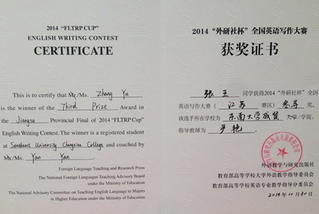 2014 "FLTRP CUP"
ENGLISH WRITING CONTEST
CERTIFICATE
This is to certify that Mr./Ms. Zhang Yu
is the winner of the Third Prize Award in
the Jiangsu Provincial Final of 2014 "FLTRP Cup"
English Writing Contest. The winner is a registered student
at Southeast University Chengxian College and coached by
Mr./Ms. Yan Yan
Foreign Language Teaching and Research Press
The National Foreign Languages Teaching Advisory Board
under the Ministry of Education
The National Advisory Committee on Teaching English to Majors
in Higher Education under the Ministry of Education
2014 "外研社杯" 全国英语写作大赛
获奖证书
张 同学获得2014 "外研社杯" 全国
英语写作大赛( 江苏 赛区) 叁等 奖,
该选手所在学校为 东南大学成贤 大学/学院,
指导教师为 严艳
外语教学与研究出版社
教育部高等学校大学外语教学指导委员会
教育部高等学校英语专业教学指导分委员会